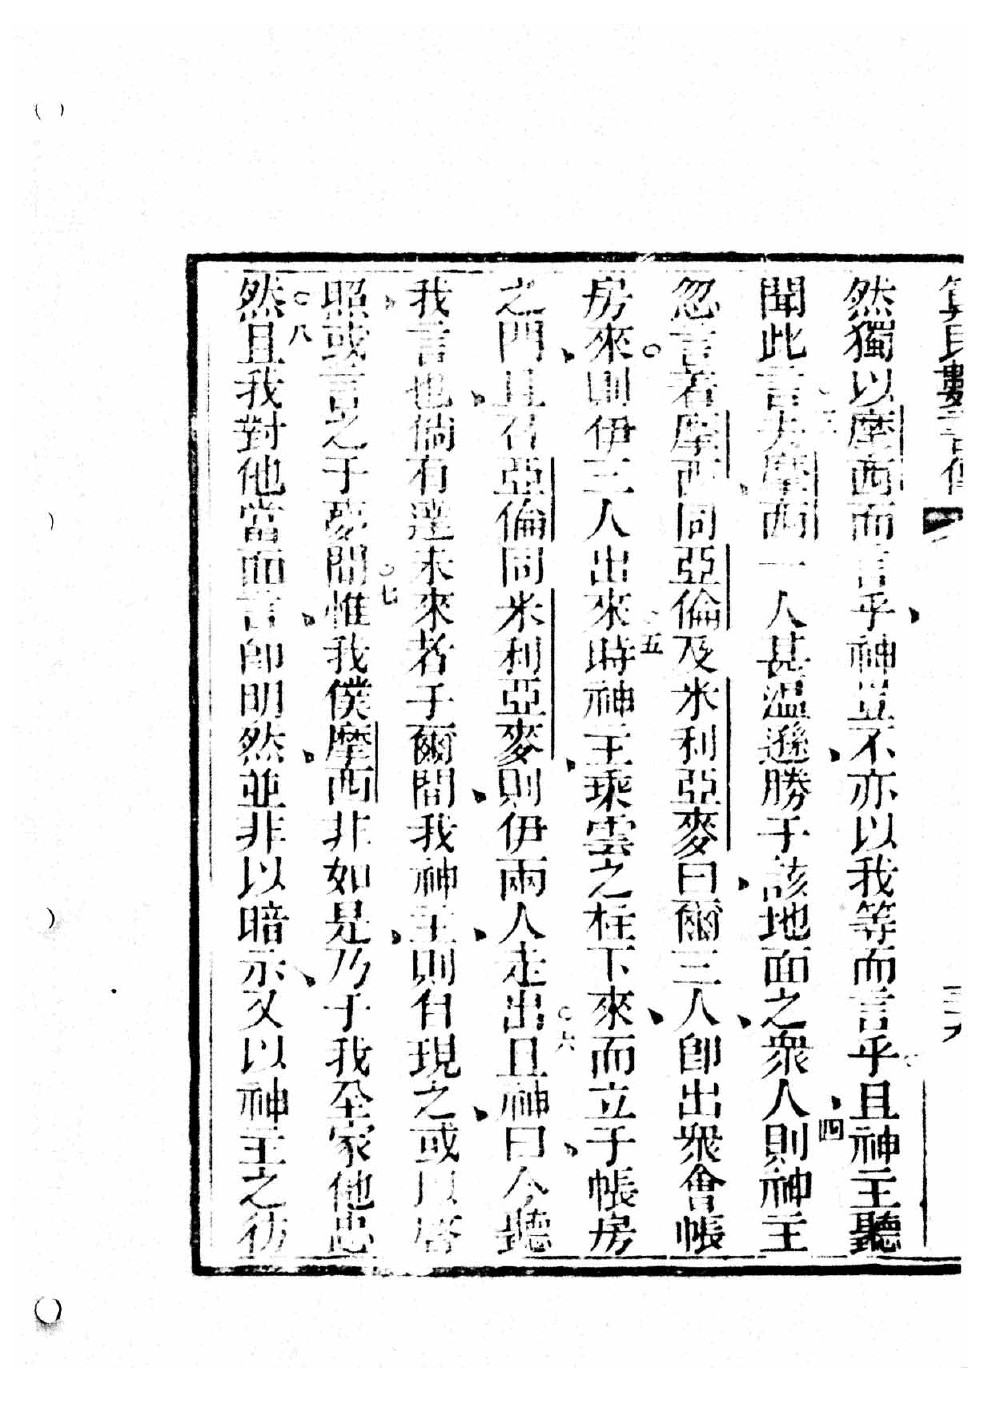 算民數書傳
然獨以摩西而言乎神豈不亦以我等而言乎且神主聽
聞此言夫摩西一人甚溫遜勝于該地面之衆人則神主
忽言著摩西同亞倫及米利亞麥曰爾三人卽出衆會帳
房來則伊三人出來時神主乘雲之柱下來而立于帳房
之門且召亞倫同米利亞麥則伊兩人走出且神曰今聽
我言也倘有達未來者于爾間我神主則自現之或以啓
照或言之于夢間惟我僕摩西非如是乃于我全家他忠
然且我對他當面言卽明然並非以暗示又以神主之彷
三
四
五
六
七
八